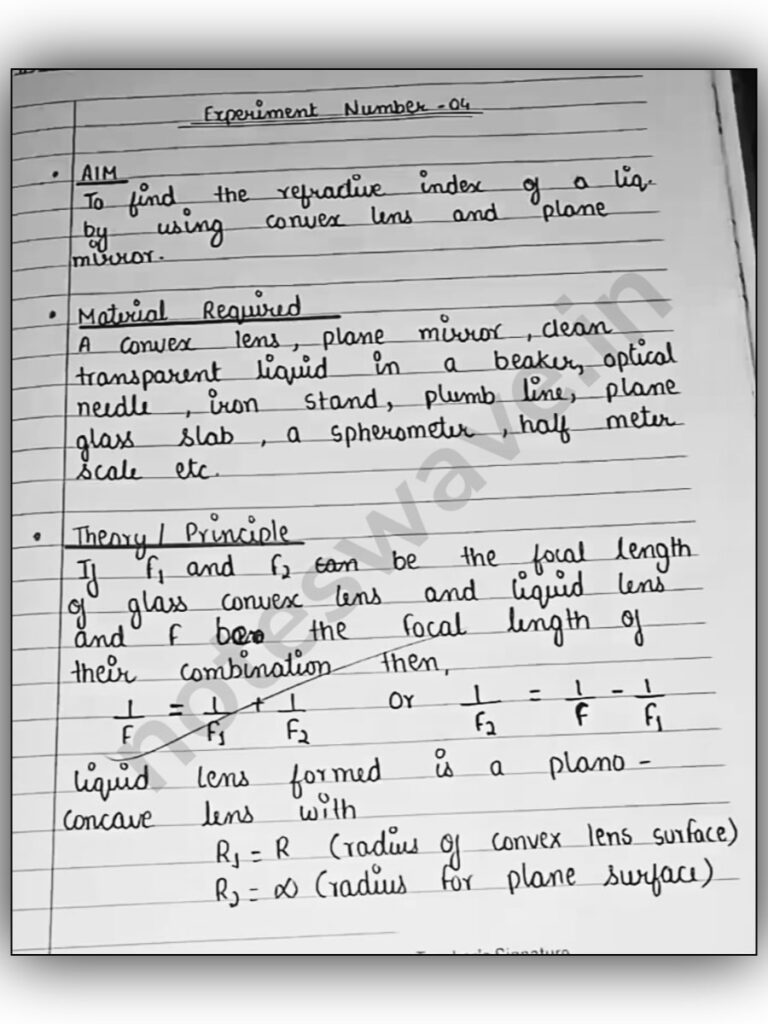 Experiment Number - 04
• AIM
To find the refractive index of a liq.
by using convex lens and plane
mirror.
• Material Required
A convex lens, plane mirror, clean
transparent liquid in a beaker, optical
needle, iron stand, plumb line, plane
glass slab, a spherometer, half meter
scale etc.
• Theory / Principle
If f₁ and f₂ can be the focal length
of glass convex lens and liquid lens
and F be the focal length of
their combination then,
1/F = 1/F₁ + 1/F₂ Or 1/F₂ = 1/F - 1/F₁
liquid lens formed is a plano -
concave lens with
R₁ = R (radius of convex lens surface)
R₂ = ∞ (radius for plane surface)
Teacher's Signature
noteswave.in